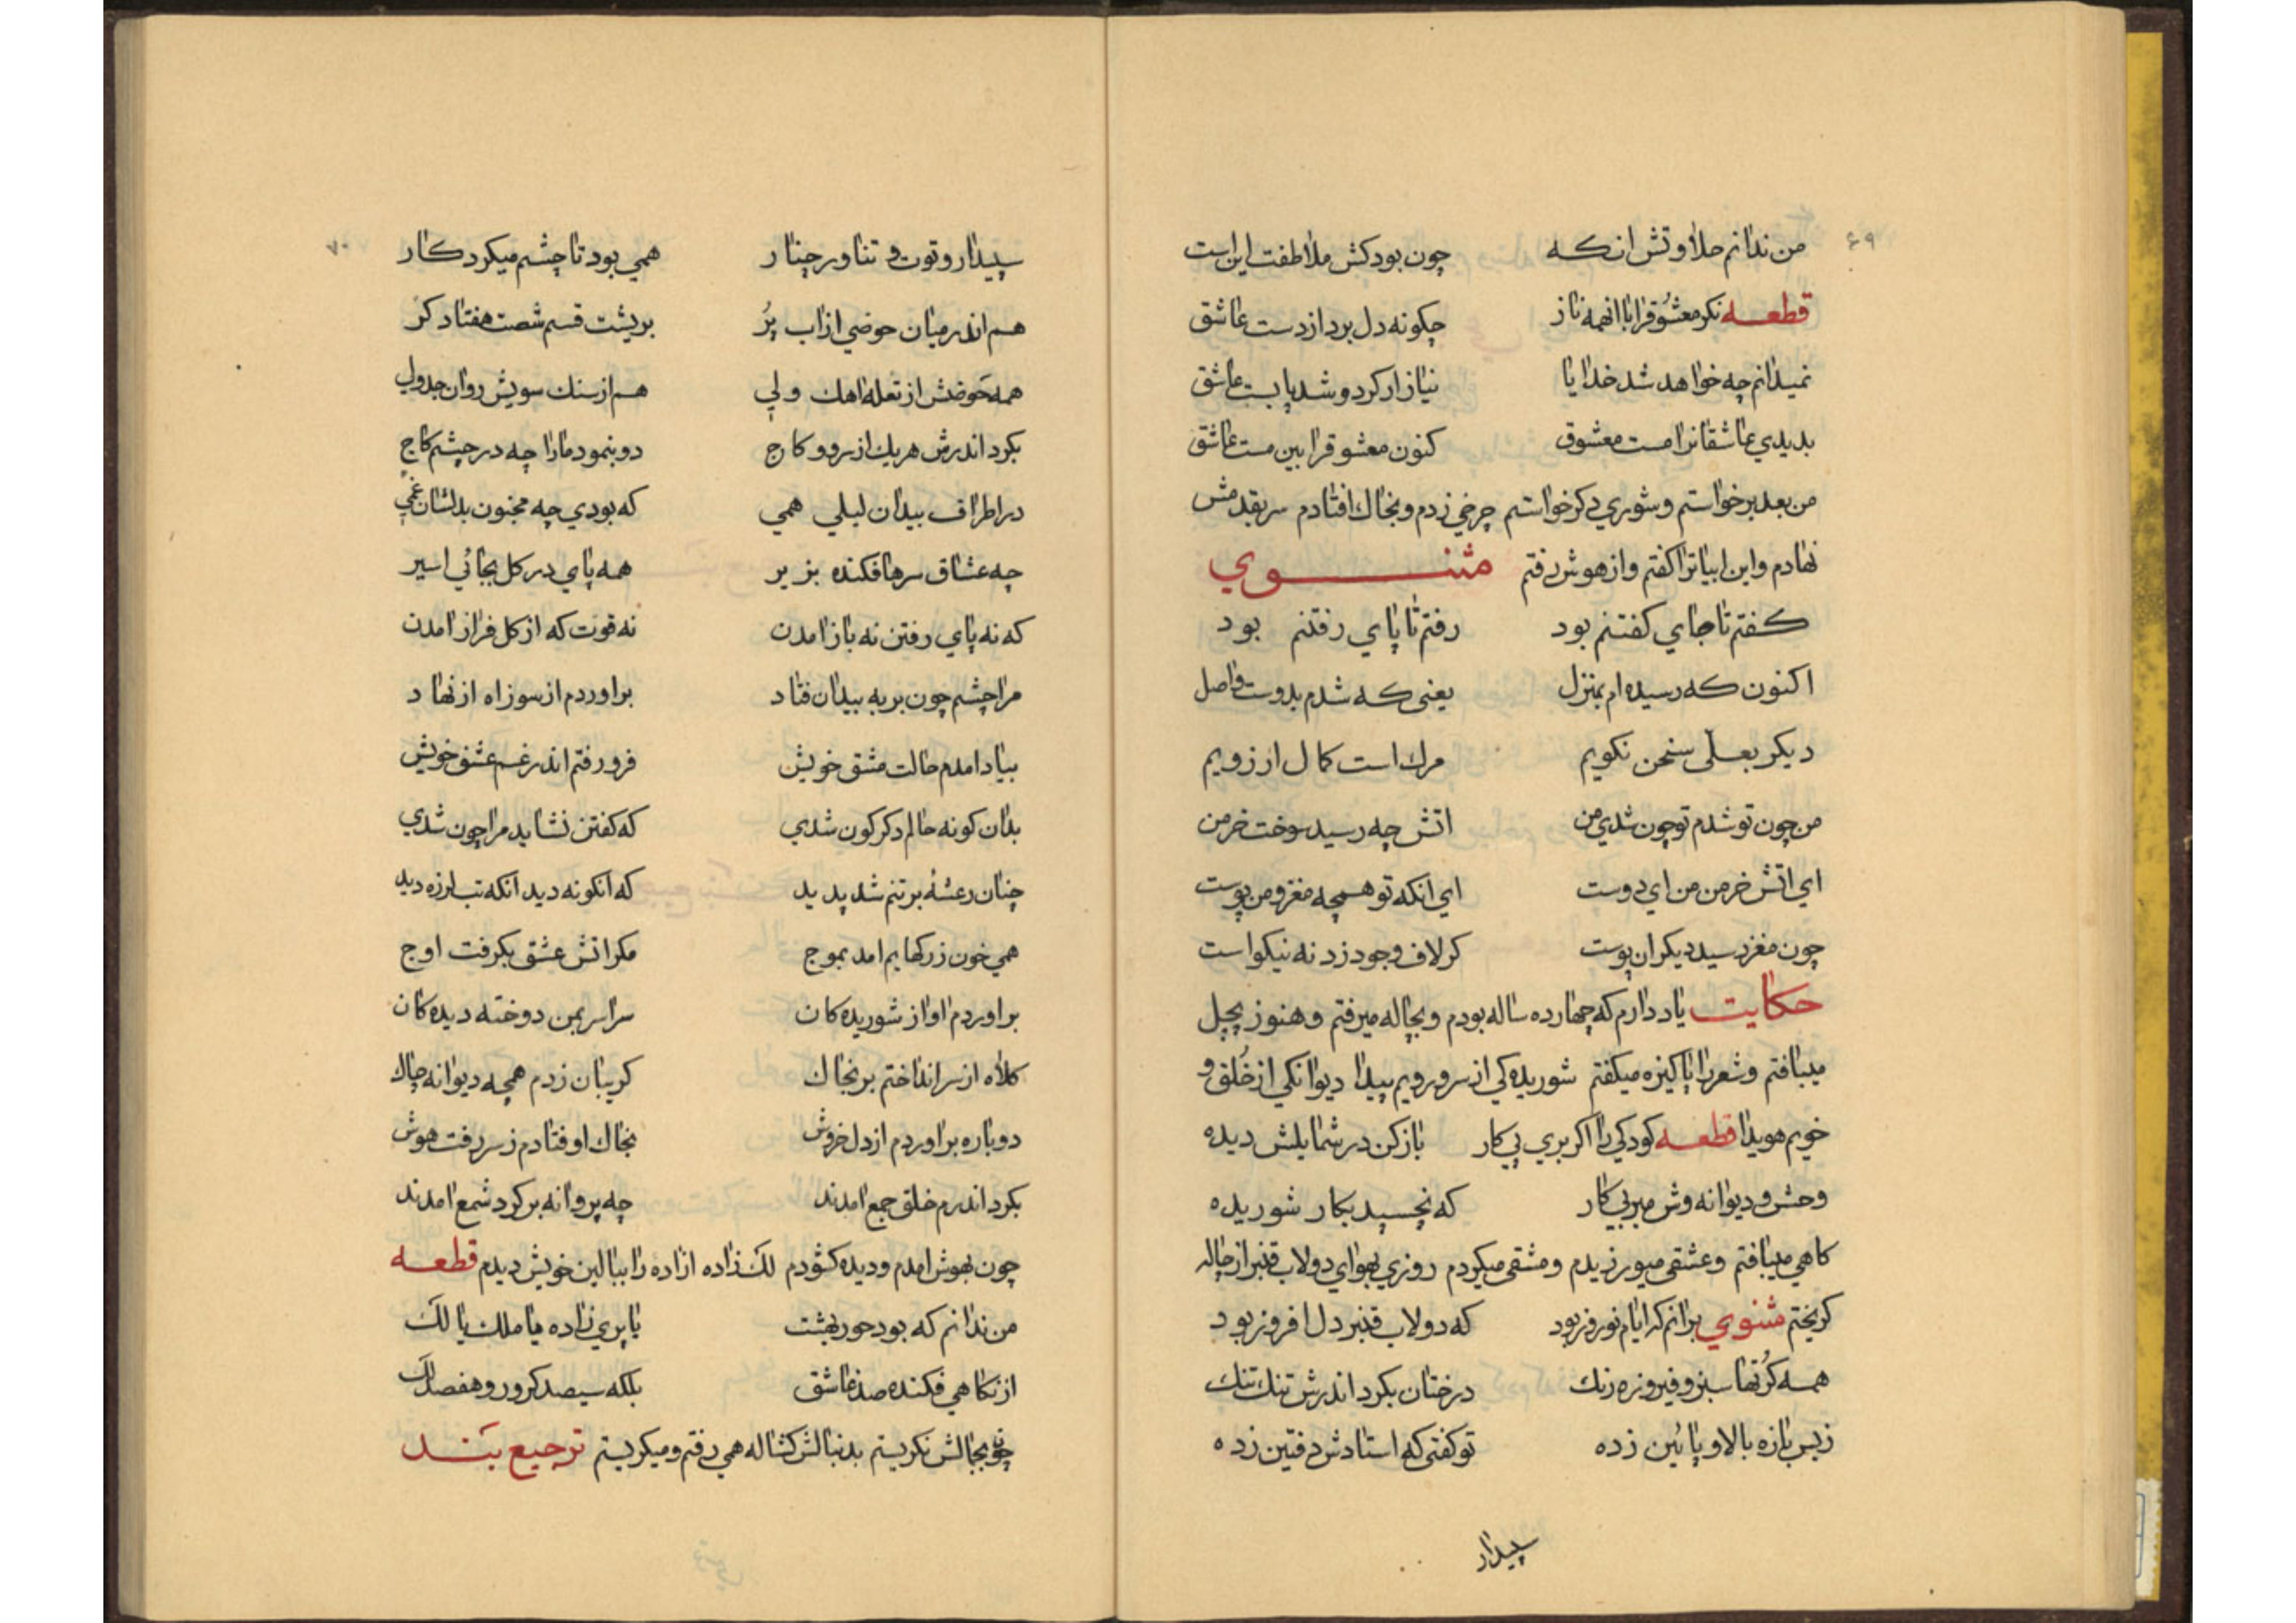 ۶۹
من ندانم حلاوتش انکه چون بود کش ملاطفت این است
قطعه نکر معشوقرا با انهمه ناز چکونه دل برد از دست عاشق
نمیدانم چه خواهد شد خدایا نیاز ار کرد و شد پا بست عاشق
بدیدی عاشقانرا مست معشوق کنون معشوقرا بین مست عاشق
من بعد برخواستم و شوری دکر خواستم چرخی زدم و بخاک افتادم سر بقدمش
نهادم و این ابیاترا کفتم و از هوش رفتم مثنوی
کفتم تا جای کفتنم بود رفتم تا پای رفتنم بود
اکنون که رسیده ام بمنزل یعنی که شدم بدوست واصل
دیکر بعلی سخن نکویم مرک است کمال ارزویم
من چون تو شدم تو چون شدی من اتش چه رسید سوخت خرمن
ای اتش خرمن من ای دوست ای انکه تو همچه مغز و من پوست
چون مغز رسید دیکر ان پوست کر لاف وجود زد نه نیکو است
حکایت یاد دارم که چهارده ساله بودم و بچاله میرفتم و هنوز بچپل
میبافتم و شعر را پاکیزه میکفتم شوریده کی از سر و رویم پیدا دیوانکی از خُلق و
خویم هویدا قطعه کودکی را اکر بری پی کار باز کن در شمایلش دیده
وحش و دیوانه وش مبر پی کار که نچسپد بکار شوریده
کاهی میبافتم و عشقی میورزیدم و مشقی میکردم روزی بهوای دولاب قنبر از چاله
کریختم مثنوی برانم که ایام نوروز بود که دولاب قنبر دل افروز بود
همه کُرتها سبز و فیروزه رنک درختان بکرد اندرش تنک تنک
ز بس تازه بالا و پائین زده تو کفتی که استادش دفتین زده
سپیدار
۷۰
سپیدار و توت و تناور چنار همی بود تا چشم میکرد کار
هم اندر میان حوضی از اب پُر بریشت قسم شصت هفتاد کر
همه حَوضش از تعله اهک ولی هم از سنک سویش روان جدولی
بکرد اندرش هر یک از سرو و کاج دو بنمود مارا چه در چشم کاج
در اطراف بیدان لیلی همی که بودی چه مجنون بدلشان غمی
چه عشاق سرها فکنده بزیر همه پای در کل بجائی اسیر
که نه پای رفتن نه باز امدن نه قوت که از کل فراز امدن
مرا چشم چون بر به بیدان فتاد براوردم از سوز اه از نهاد
بیاد امدم حالت مشق خویش فرو رفتم اندر غم عشق خویش
بدان کونه حالم دکرکون شدی که کفتن نشاید مرا چون شدی
چنان رعشهٔ بر تنم شد پدید که انکونه دید انکه تب لرزه دید
همی خون ز رکهایم امد بموج مکر اتش عشق بکرفت اوج
براوردم اواز شوریده کان سراسر بمن دوخته دیده کان
کلاه از سر انداختم بر بخاک کریبان زدم همچه دیوانه چاک
دوباره براوردم از دل خروش بخاک اوفتادم ز سر رفت هوش
بکرد اندرم خلق جمع امدند چه پروانه بر کرد شمع امدند
چون بهوش امدم و دیده کشودم لک زاده ازاده را ببالین خویش دیدم قطعه
من ندانم که بود حور بهشت یا پری زاده یا ملک یا لک
از نکاهی فکنده صد عاشق بلکه سیصد کرور و هفصد لک
چون بجالش نکریستم بدنبالش کشاله همی رفتم و میکریستم ترجیع بَند